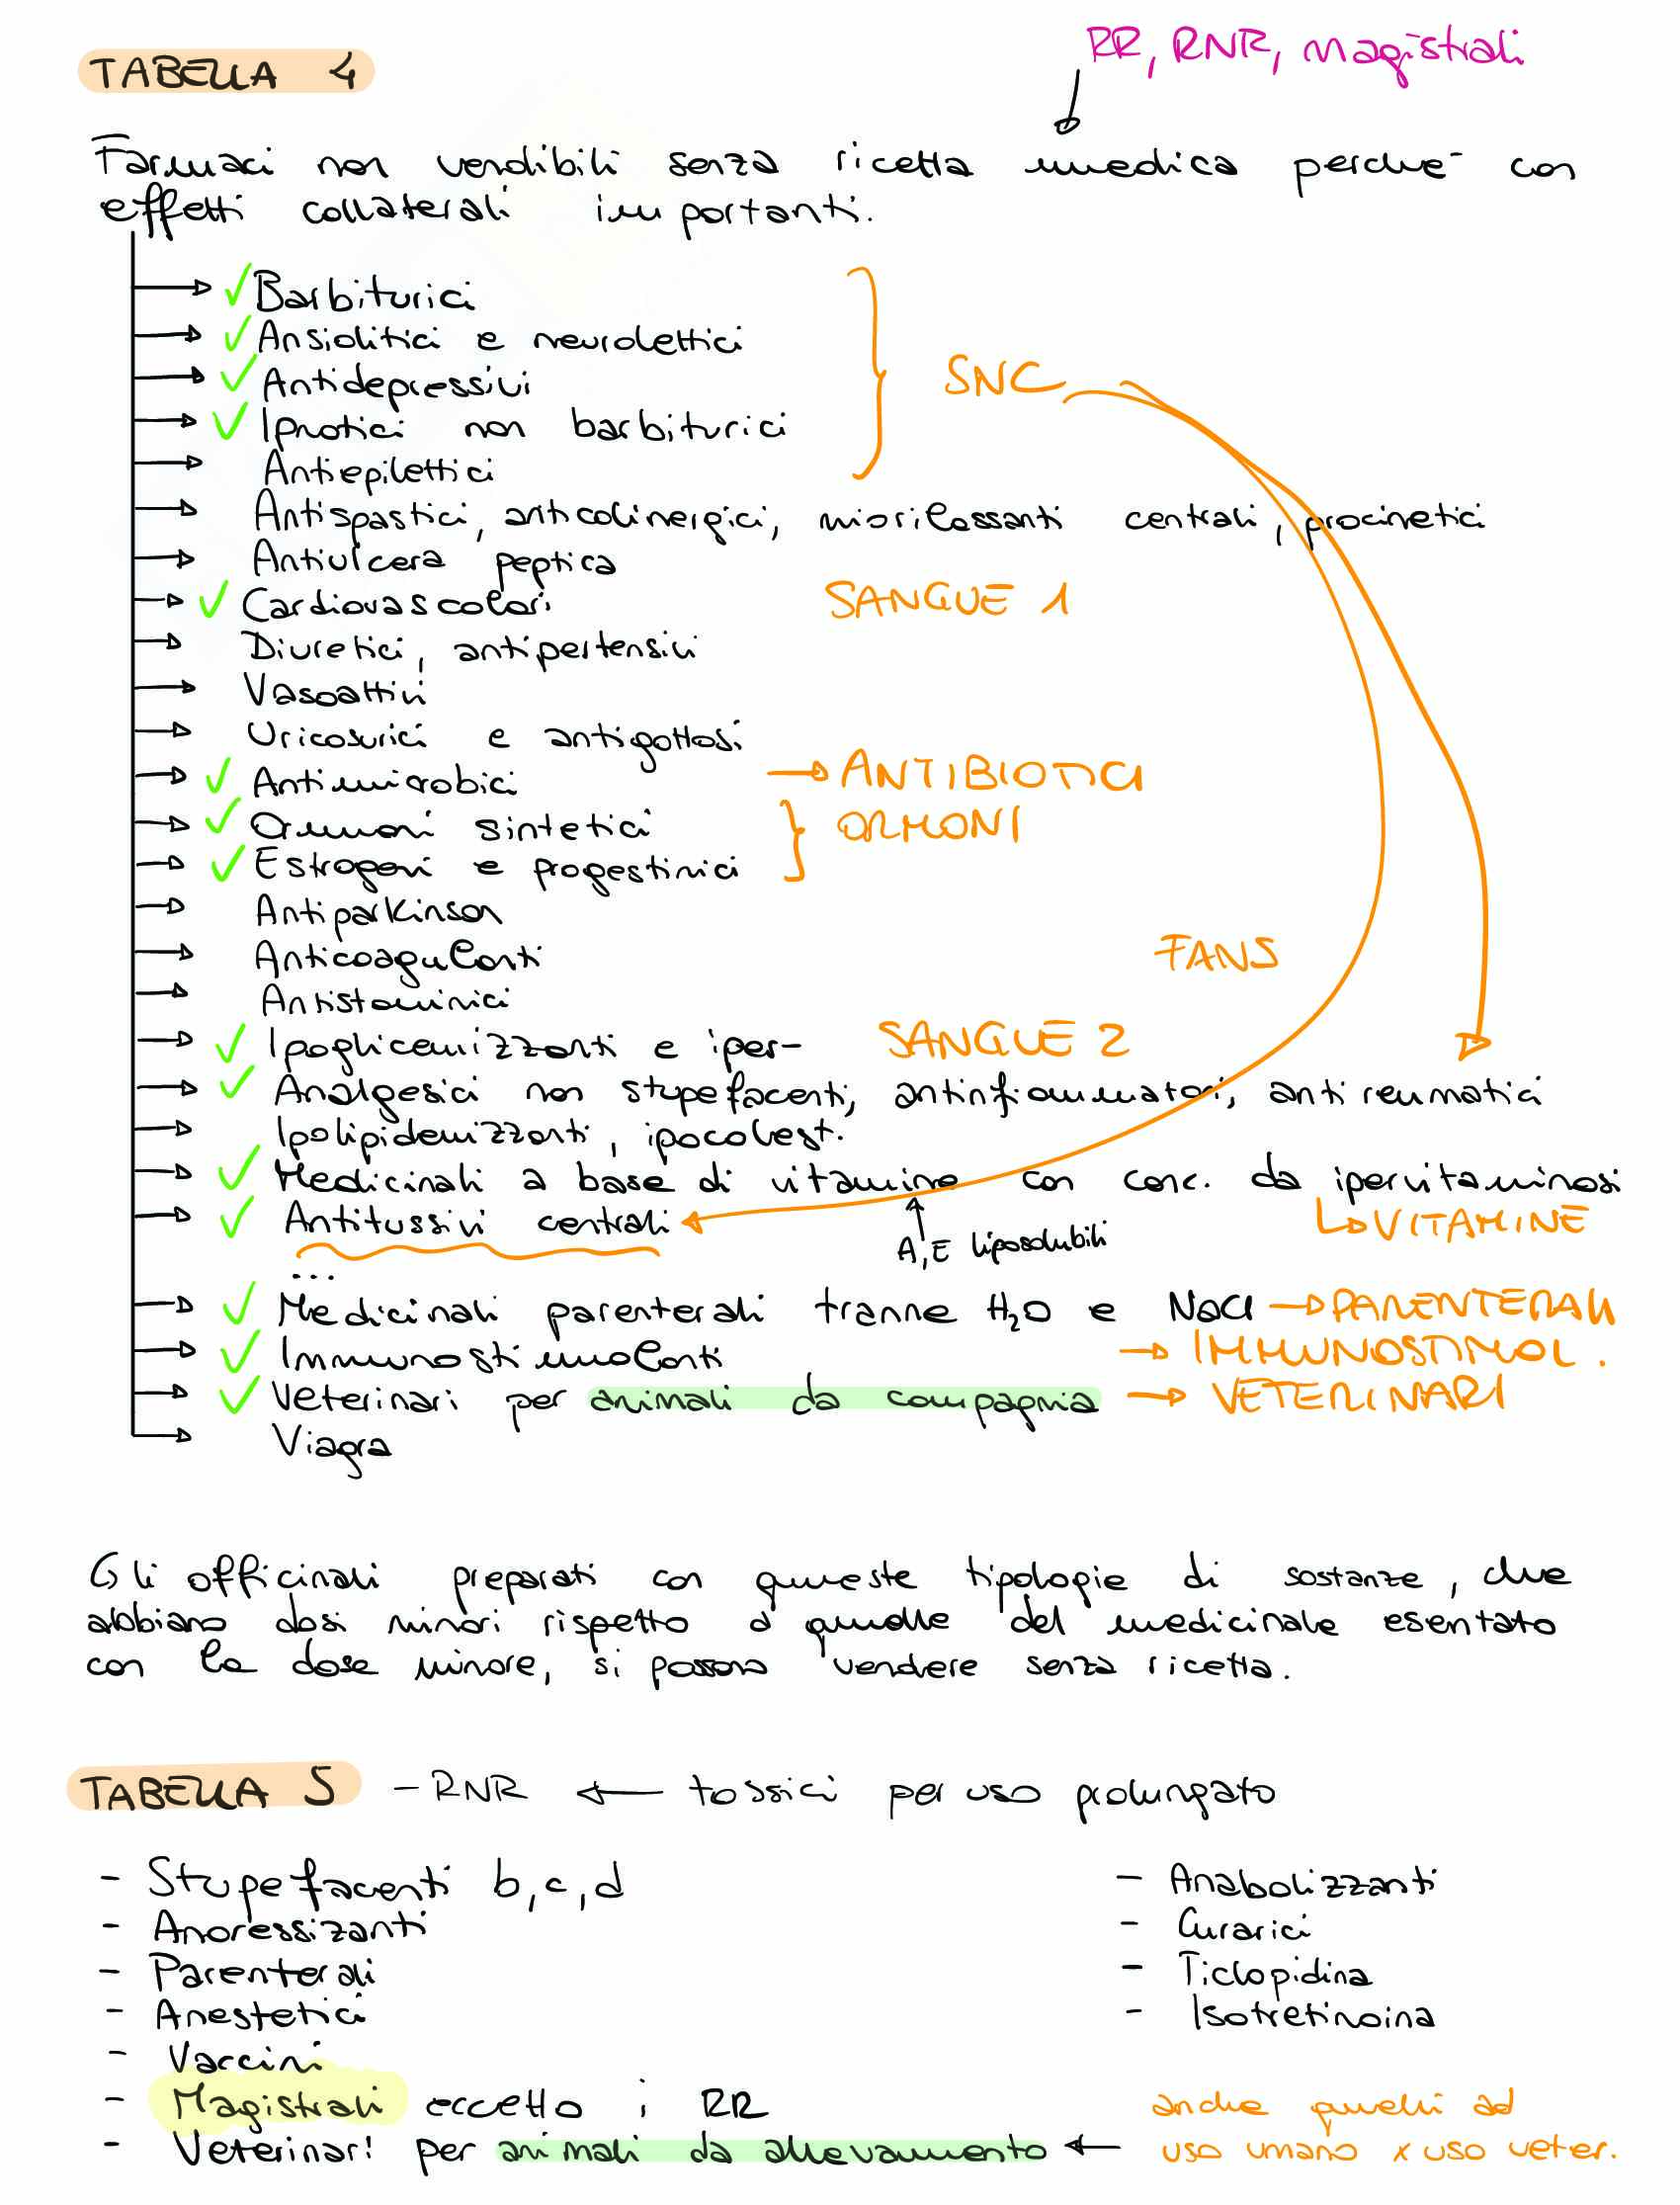 RR, RNR, magistrali
TABELLA 4
Farmaci non vendibili senza ricetta medica perché con
effetti collaterali importanti.
Barbiturici
Ansiolitici e neurolettici
Antidepressivi
SNC
Ipnotici non barbiturici
Antiepilettici
Antispastici, anticolinergici, miorilassanti centrali, procinetici
Antiulcera peptica
Cardiovascolari SANGUE 1
Diuretici, antipertensivi
Vasoattivi
Uricosurici e antigottosi
Antimicrobici → ANTIBIOTICI
Ormoni sintetici ORMONI
Estrogeni e progestinici
Antiparkinson
Anticoagulanti FANS
Antistaminici
Ipoglicemizzanti e iper- SANGUE 2
Analgesici non stupefacenti, antinfiammatori, antireumatici
Ipolipidemizzanti, ipocolest.
Medicinali a base di vitamine con conc. da ipervitaminosi
Antitussivi centrali VITAMINE
A, E liposolubili
...
Medicinali parenterali tranne H₂O e NaCl → PARENTERALI
Immunostimolanti → IMMUNOSTIMOL.
Veterinari per animali da compagnia → VETERINARI
Viagra
Gli officinali preparati con queste tipologie di sostanze, che
abbiano dosi minori rispetto a quelle del medicinale esentato
con la dose minore, si possono vendere senza ricetta.
TABELLA 5 - RNR ← tossici per uso prolungato
- Stupefacenti b, c, d
- Anoressizanti
- Parenterali
- Anestetici
- Vaccini
- Magistrali eccetto i RR
- Veterinari per animali da allevamento ← anche quelli ad
uso umano x uso veter.
- Anabolizzanti
- Curarici
- Ticlopidina
- Isotretinoina